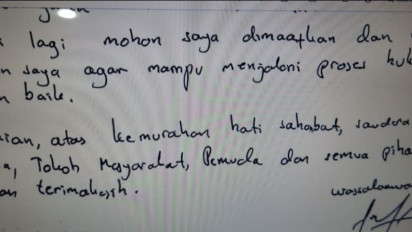 lagi mohon saya dimaafkan dan
saya agar mampu menjaloni proses huk
baik.
atas kemurahan hati sahabat, saudara
Tokoh Masyarakat, Pemuda dan semua piha
terimakasih.